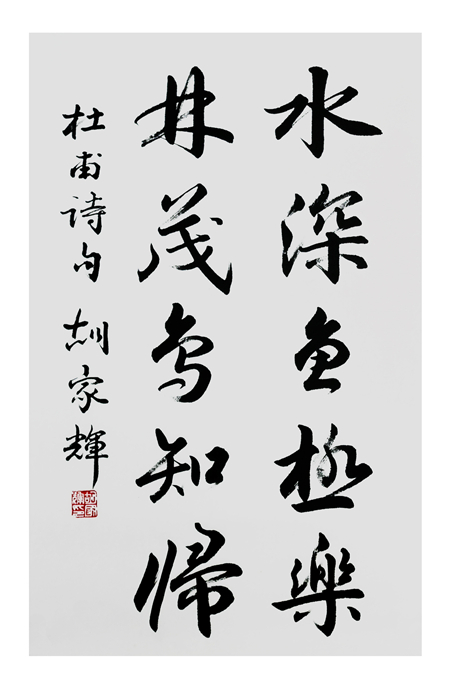 水深魚極樂
林茂鳥知歸
杜甫詩句 胡家輝